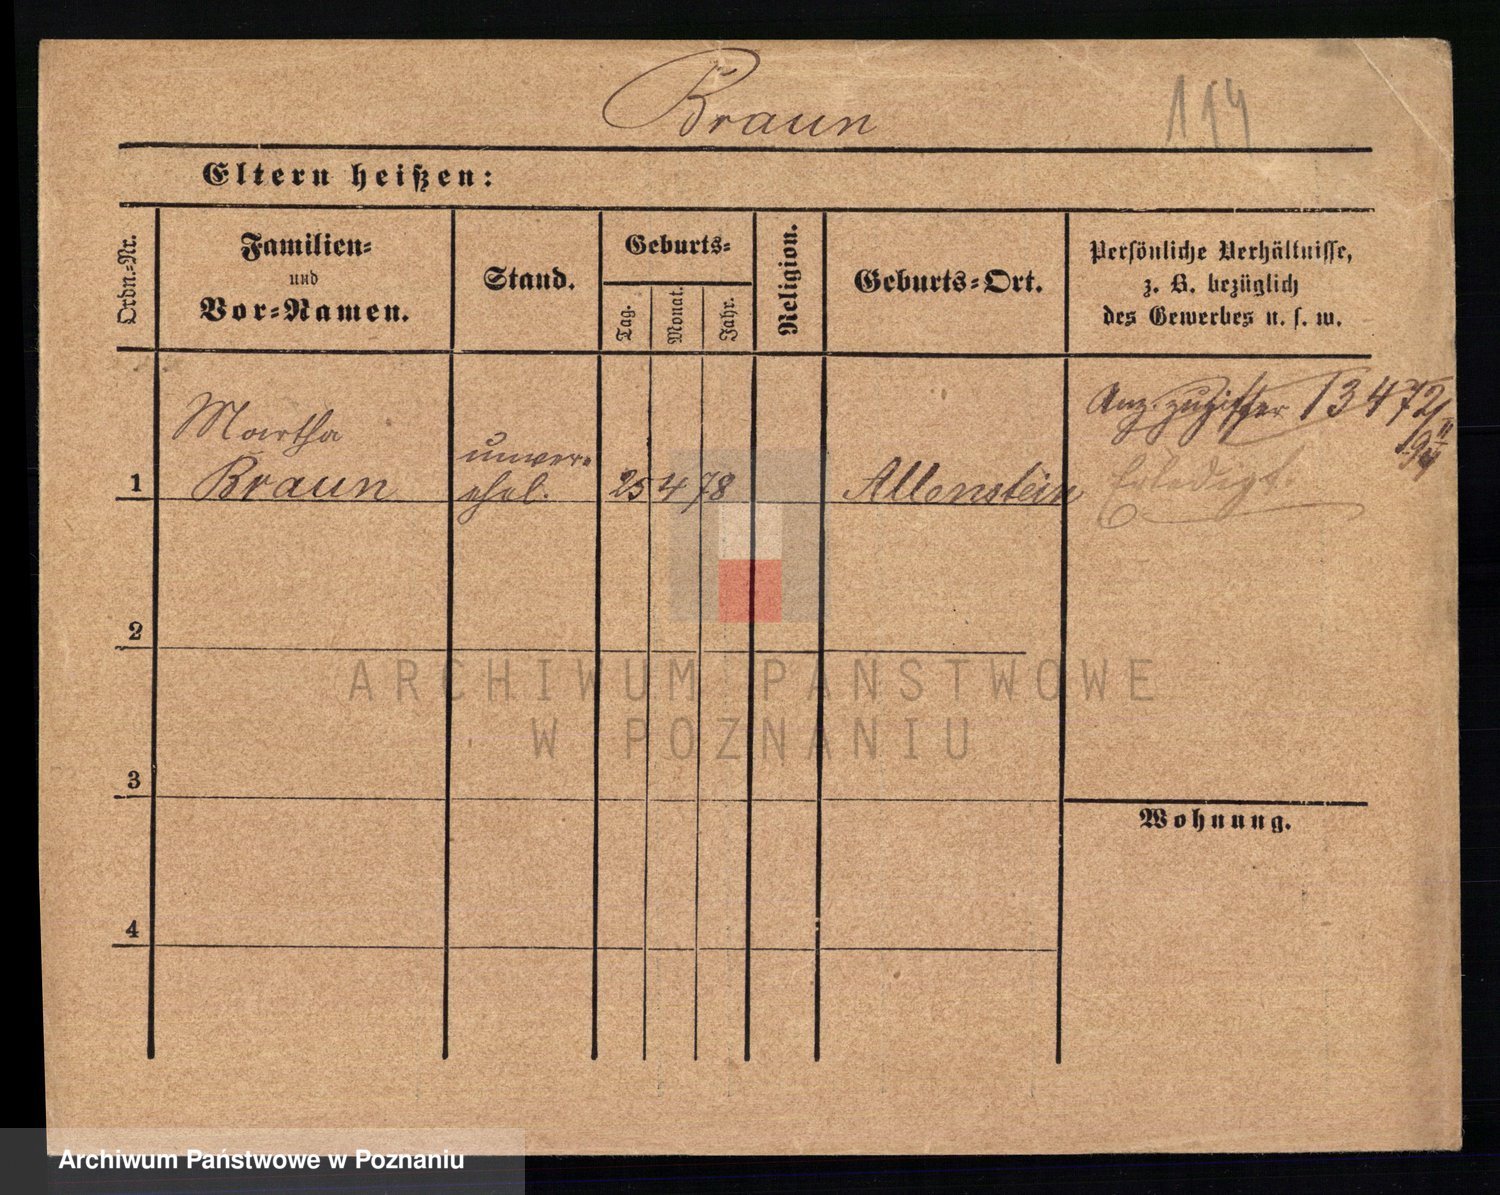 Braun
114
Eltern heißen:
Ordn.-Nr.
Familien-
und
Vor-Namen.
Stand.
Geburts-
Tag.
Monat.
Jahr.
Religion.
Geburts-Ort.
Persönliche Verhältnisse,
z. B. bezüglich
des Gewerbes u. s. w.
1
Martha
Braun
unver-
ehel.
25 4 78
Allenstein
Anz. 13472
Erledigt.
2
3
4
Wohnung.
ARCHIWUM PAŃSTWOWE
W POZNANIU
Archiwum Państwowe w Poznaniu